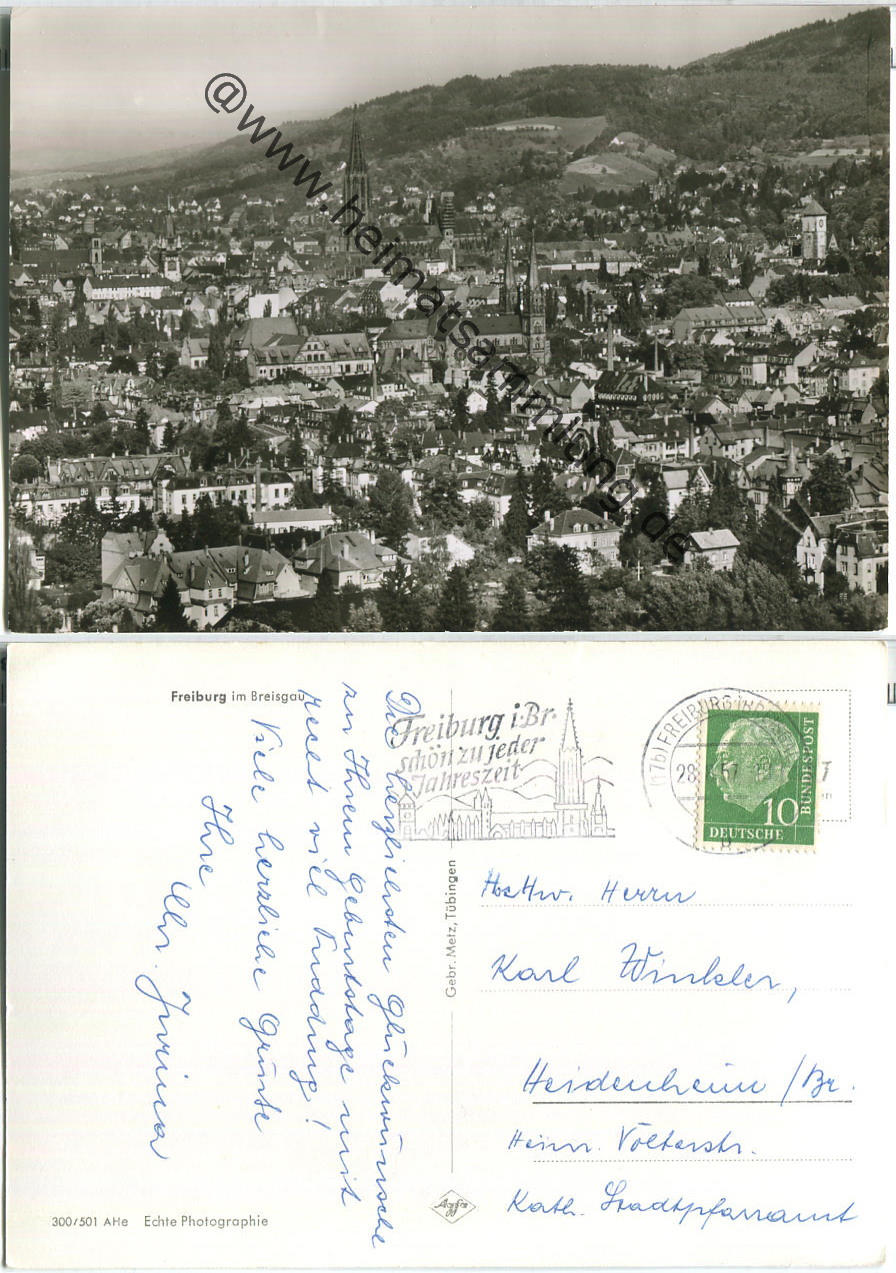 @www.heimatsammlung.de
Freiburg im Breisgau
Die herzlichsten Glückwünsche
zu Ihrem Geburtstage mit
recht viel Pudding!
Viele herzliche Grüsse
Ihre
Freiburg i. Br.
schön zu jeder
Jahreszeit
(17b) FREIBURG
28
57
10
DEUTSCHE
BUNDESPOST
Gebr. Metz, Tübingen
Herrn
Karl Winkler,
Heidenheim /Br.
Heinr. Völterstr.
Kath. Stadtpfarramt
300/501 AHe Echte Photographie
Agfa